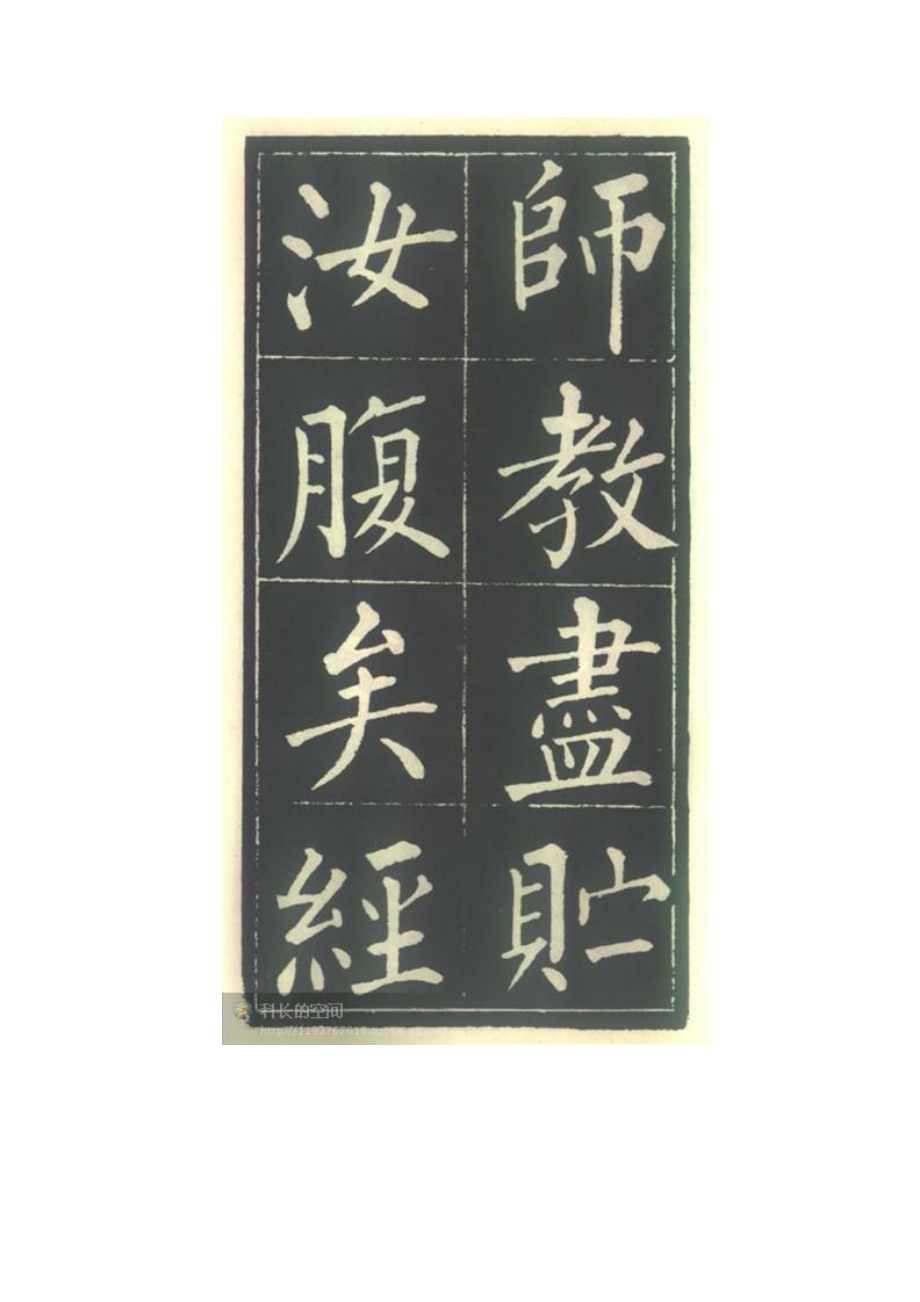 師教盡貯
汝腹矣經
科长的空间